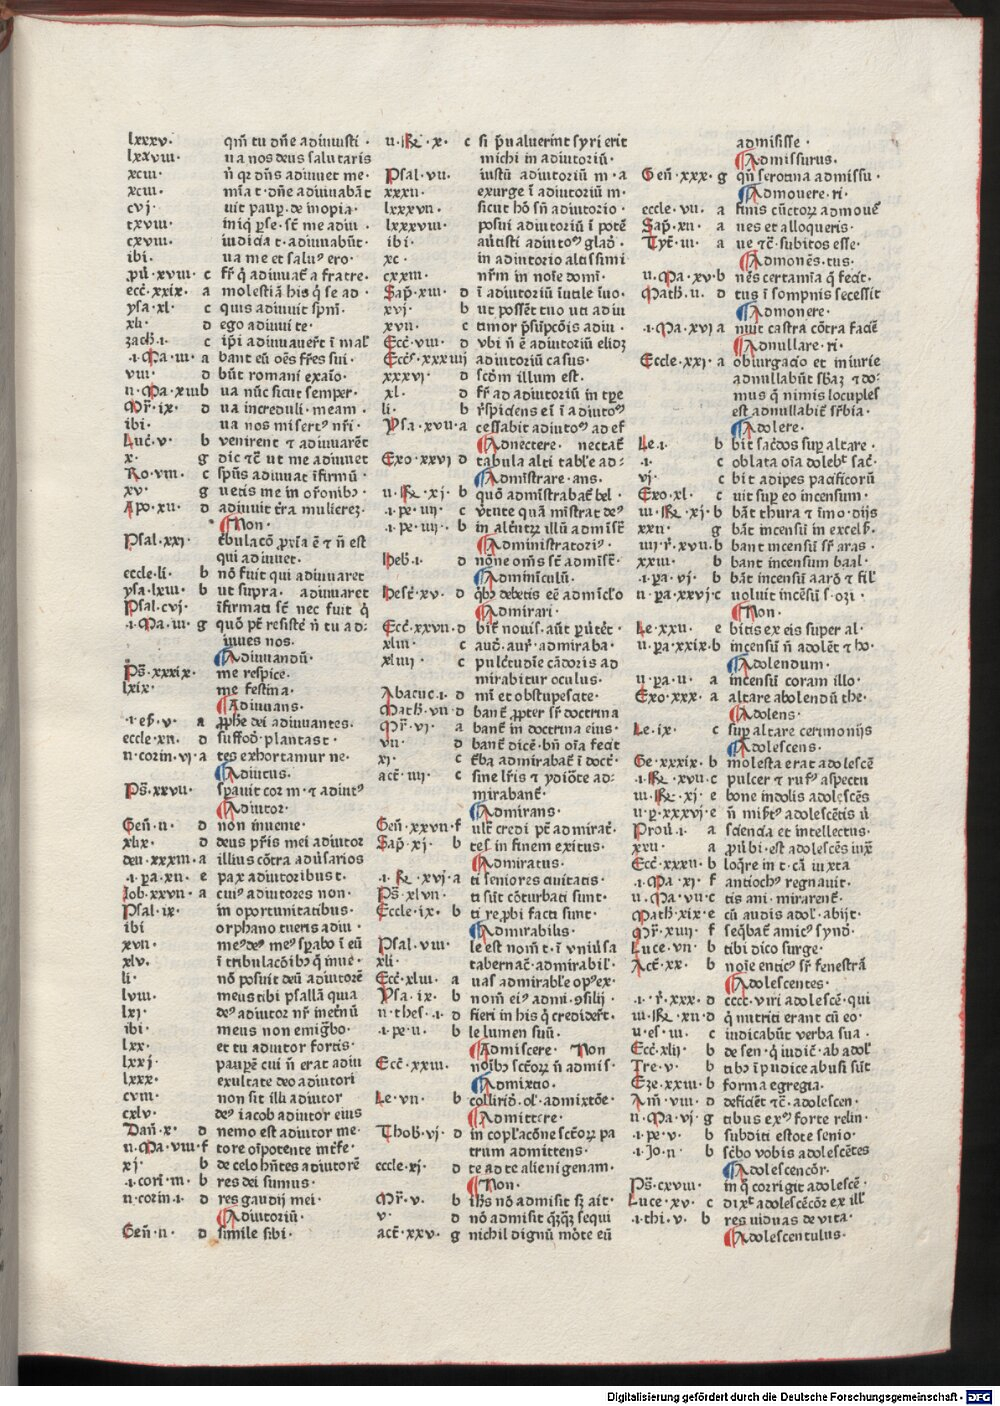 lxxxv· qm̄ tu dn̄e adiuuisti ·
lxxviii· ua nos deus salutaris
xciii· n̄ qr dn̄s adiuuet me·
xciii· mīa t· dn̄e adiuuabāt
cvj· uit paup̱· de inopia·
cxviii· iniq̱ p̱se· sc̄ me adiu ·
cxviii· iudicia t· adiuuabūt·
ibi· ua me et saluꝰ ero·
ꝓū·xviii· c fr̄ q̄ adiuuat̄ a fratre·
ecc̄·xxix· a molestiā his q̄ se ad ·
ysa·xl· c quis adiuuit sp̄m·
xli· d ego adiuui te·
zach·i· c ip̄i adiuuauer̄t ī mal̄
·i·Ma·iii· a bant eū oēs fr̄es sui·
viii· d būt romani exaīo·
ii·Ma·xiii b ua nūc sicut semper·
Mr̄·ix· d ua increduli·meam·
ibi· ua nos misertꝰ nr̄i·
Luc̄·v· b venirent ⁊ adiuuarēt
x· g dic̄ ⁊c̄ ut me adiuuet
Ro·viii· c sp̄us adiuuat īfirmū·
xv· g uetis me in or̄onibꝫ·
Apo·xii· d adiuuit t̄ra mulierez·
Non·
Psal·xxi· t̄bulacō ꝓxīa ē ⁊ n̄ est
qui adiuuet·
eccle·li· b nō fuit qui adiuuaret
ysa·lxiii· b ut supra· adiuuaret
Psal·cvj· īfirmati sc̄ nec fuit q̄
·i·Ma·iii· g quō pt̄ resistē n̄ tu ad-
iuues nos·
Adiuuandū·
Ps̄·xxxix· me respice·
lxix· me festina·
Adiuuans·
·i·eſ·v· a ꝓphe dei adiuuantes·
eccle·xii· d suffod·plantast·
ii·corin·vj·a tes exhortamur ne·
Adiutus·
Ps̄·xxvii· spauit coꝛ m·⁊ adiutꝰ
Adiutor·
Gen̄·ii· d non inueme·
xlix· d deus pr̄is mei adiutor
deu·xxxiii·a illius cōtra adūsarios
·i·pa·xii· e pax adiutoribus t·
Iob·xxvii·a cuiꝰ adiutores non·
Psal·ix· in oportunitatibus·
ibi orphano tueris adiu·
xvii· meꝰdeꝰ meꝰ spabo ī eū
xlv· ī tribulacōibꝫ q̄ inue·
li· nō posuit deū adiutorē
lviii· meus tibi psallā quia
lxj· deꝰ adiutor nr̄ inet̄nū
ibi· meus non emig̊bo·
lxx· et tu adiutor fortis·
lxxj paupē cui n̄ erat adiu
lxxx· exultate deo adiutori
cviii· non sit illi adiutor
cxlv· deꝰ iacob adiutor eius
Dan̄·x· d nemo est adiutor me·
ii·Ma·viii·f tore oīpotente mt̄fe·
xj· b de celo hn̄tes adiutorē
·i·cori·iii·b res dei sumus·
ii·corin·i·d res gaudij mei·
Adiutoriū·
Gen̄·ii· d simile sibi·
ii·Re·x· c si p̄ualuerint syri erit
michi in adiutoriū·
Psal·vii· iustū adiutoriū m·a
xxxii· exurge ī adiutoriū m·
lxxxvii· sicut hō sn̄ adiutorio·
lxxxviii· posui adiutoriū ī potē
ibi· auēisti adiutoꝰ glad̄·
xc· in adiutorio altissimi
cxxiii· nr̄m in noīe domī·
Sap̄·xiii· d ī adiutoriū īutile īuo·
xvj· b ut possēt tuo uti adiu
xvii· c timor p̄suīpcōis adiu·
Ecc̄·viii· d vbi n̄ ē adiutoriū elidꝫ
Ecc̄·xxxiiij adiutoriū casus·
xxxvj· d scd̄m illum est·
xl· d fr̄ ad adiutoriū in tp̄e
li· b r̄spiciens ei ī adiutoꝰ
Ysa·xvii·a cessabit adiutoꝰ ad ef
Adnectere· nectat̄
Exo·xxvj d tabula alti tabl̄e ad:
Admīstrare·ans·
ii·Re·xj· b quō admīstrabat̄ bel·
·i·pe·iiij· c vt̄nte quā mīstrat deꝰ
·i·pe·iiij· b in alt̄utꝝ illū admīsc̄
Administratoriꝰ·
Heb̄·i· d nōne om̄s sc̄ admīsc̄·
Adminiculū·
Hest̄·xv· d q̄bꝫ debetis eē admīc̄lo
Admirari·
Ecc̄·xxvii·d bit̄ nouis·aūt ꝓūt̄et·
xliii· c aud̄·aur̄·admiraba·
xliij· c pulc̄tudīe cādoris ad
mirabitur oculus·
Abacuc·i· d mī et obstupescate·
Math·vii d bant̄ ꝓpter sr̄ doctrina
Mr̄·vj· a bant̄ in doctrina eius·
vii· d bant̄ dicē·bn̄ oīa fecit
xj· c t̄bꝫ admirabat̄ ī doct̄·
act̄·iiij· c sine lr̄is ⁊ ydiōte ad-
mirabant̄·
Admirans·
Gen̄·xxvii·f ult̄ credi pt̄ admirat̄·
Sap̄·xj· b tes in finem exitus·
Admiratus·
·i·Re·xvj·a ti seniores ciuitatis·
Ps̄·xlvii· ti sūt cōturbati sunt·
Eccle·ix· b ti re ꝓbi facti sunt·
Admirabilis·
Psal·viii· le est nom̄ t·ī vniūsa
xli· tabernac̄·admirabil̄·
Ecc̄·xliii· a uas admirabile opꝰex·
Ysa·ix· b nom̄ eiꝰ admi·ꝯsilij·
ii·thes·i·d fieri in his q̄ credidert̄·
·i·pe·ii· b le lumen suū·
Admiscere· Non
Ecc̄·xxiii· noībꝫ sct̄oꝝ n̄ admis·
Admixtio·
Le·vii· b colliriō·ol̄·admixtōe·
Admittere·
Thob̄·vj· d in copl̄acōne sct̄oꝝ pa
trum admittens·
eccle·xj· d te ad te alienigenam·
Non·
Mr̄·v· b ih̄s nō admisit sꝫ ait·
v· d nō admisit q̄zq̄z sequi
act̄·xxv· g nichil dignū mōte eū
admisisse·
Admissurus·
Gen̄·xxx·g qn̄ serotina admissu·
Admouere·ri·
eccle·vii· a finis cūctoꝝ admouet̄
Sap̄·xii· a nes et alloqueris·
Tyt̄·iii· a ue ⁊c̄·subitos esse·
Admonēs·tus·
ii·Ma·xv·b nēs certamīa q̄ fecāt·
Math̄·ii· d tus ī sompnis secessit
Admonere·
·i·Ma·xvj a nuit castra cōtra faciē
Adnullare·ri·
Eccle·xxj· a obiurgacio et iniurie
adnullabūt sbāꝫ ⁊ do-
mus q̄ nimis locuples
est adnullabit̄ sr̄bia·
Adolere·
Le·i· b bit sac̄dos suꝑ altare·
·i· c oblata oīa doleb̄t sac̄·
vj· c bit adipes pacificorū
Exo·xl· c uit suꝑ eo incensum·
iii·Re·xj·b bāt thura ⁊ īmo·dijs
xxii· g bāt incensū in excels̄·
iiij·r̄·xvii·b bant incensū sr̄ aras·
xxiii· b bant incensum baal·
·i·pa·vj· b bāt incensū aarō ⁊ fil̄
ii·pa·xxvj·c uoluit incēsū s·ozi·
Non·
Le·xxii· e bitis ex eis super al·
ii·pa·xxix·b incensū n̄ adolēt ⁊ ho·
Adolendum·
ii·pa·ii· a incensū coram illo·
Exo·xxx· a altare abolendū the·
Adolens·
Le·ix· c suꝑ altare cerimonijs
Adolescens·
Ge·xxxix·b molesta erat adolescē
·i·Re·xvii·c pulcer ⁊ rufꝰ aspectu
iii·Re·xj· e bone indolis adolescēs
ii·p̄·xxxvj·e n̄ mis̄tꝰ adolescētis ū
Proū·i· a sciencia et intellectus·
xxii· a ꝓūbi·est adolescēs iux̄
Ecc̄·xxxii·b loq̄re in t·cā iuxta
·i·Ma·xj· f antiochꝰ regnauit·
ii·Ma·vii·c tis ani·mirarent̄·
Math̄·xix·e cū audis adol̄·abijt·
Mr̄·xiiij· f seq̄bat̄ amictꝰ syndō·
Luce·vii· b tibi dico surge·
Act̄·xx· b noīe enticꝰ sr̄ fenestrā
Adolescentes·
·i·r̄·xxx·d cccc·viri adolescē·qui
iii·Re·xii·d q̄ nutriti erant cū eo·
ii·es·iii· c iudicabūt verba sua·
Ecc̄·xlij· b de sen·q̄ iudic̄·ab adol̄
Tre·v· b tibꝫ īpudice abusi sūt
Eze·xxiii·b forma egregia·
Am̄·viii· d deficiēt ⁊c̄·adolescen·
ii·Ma·vj· g tibus exꝰ forte relin·
·i·pe·v· b subditi estote senio·
·i·Jo·ii· b sc̄bo vobis adolescētes
Adolescencōr·
Ps̄·cxviii· in q̄ corrigit adolescē·
Luce·xv· c dixt̄ adolescēcōr ex ill̄
·i·thi·v· b res uiduas de vita·
Adolescentulus·
Digitalisierung gefördert durch die Deutsche Forschungsgemeinschaft · DFG